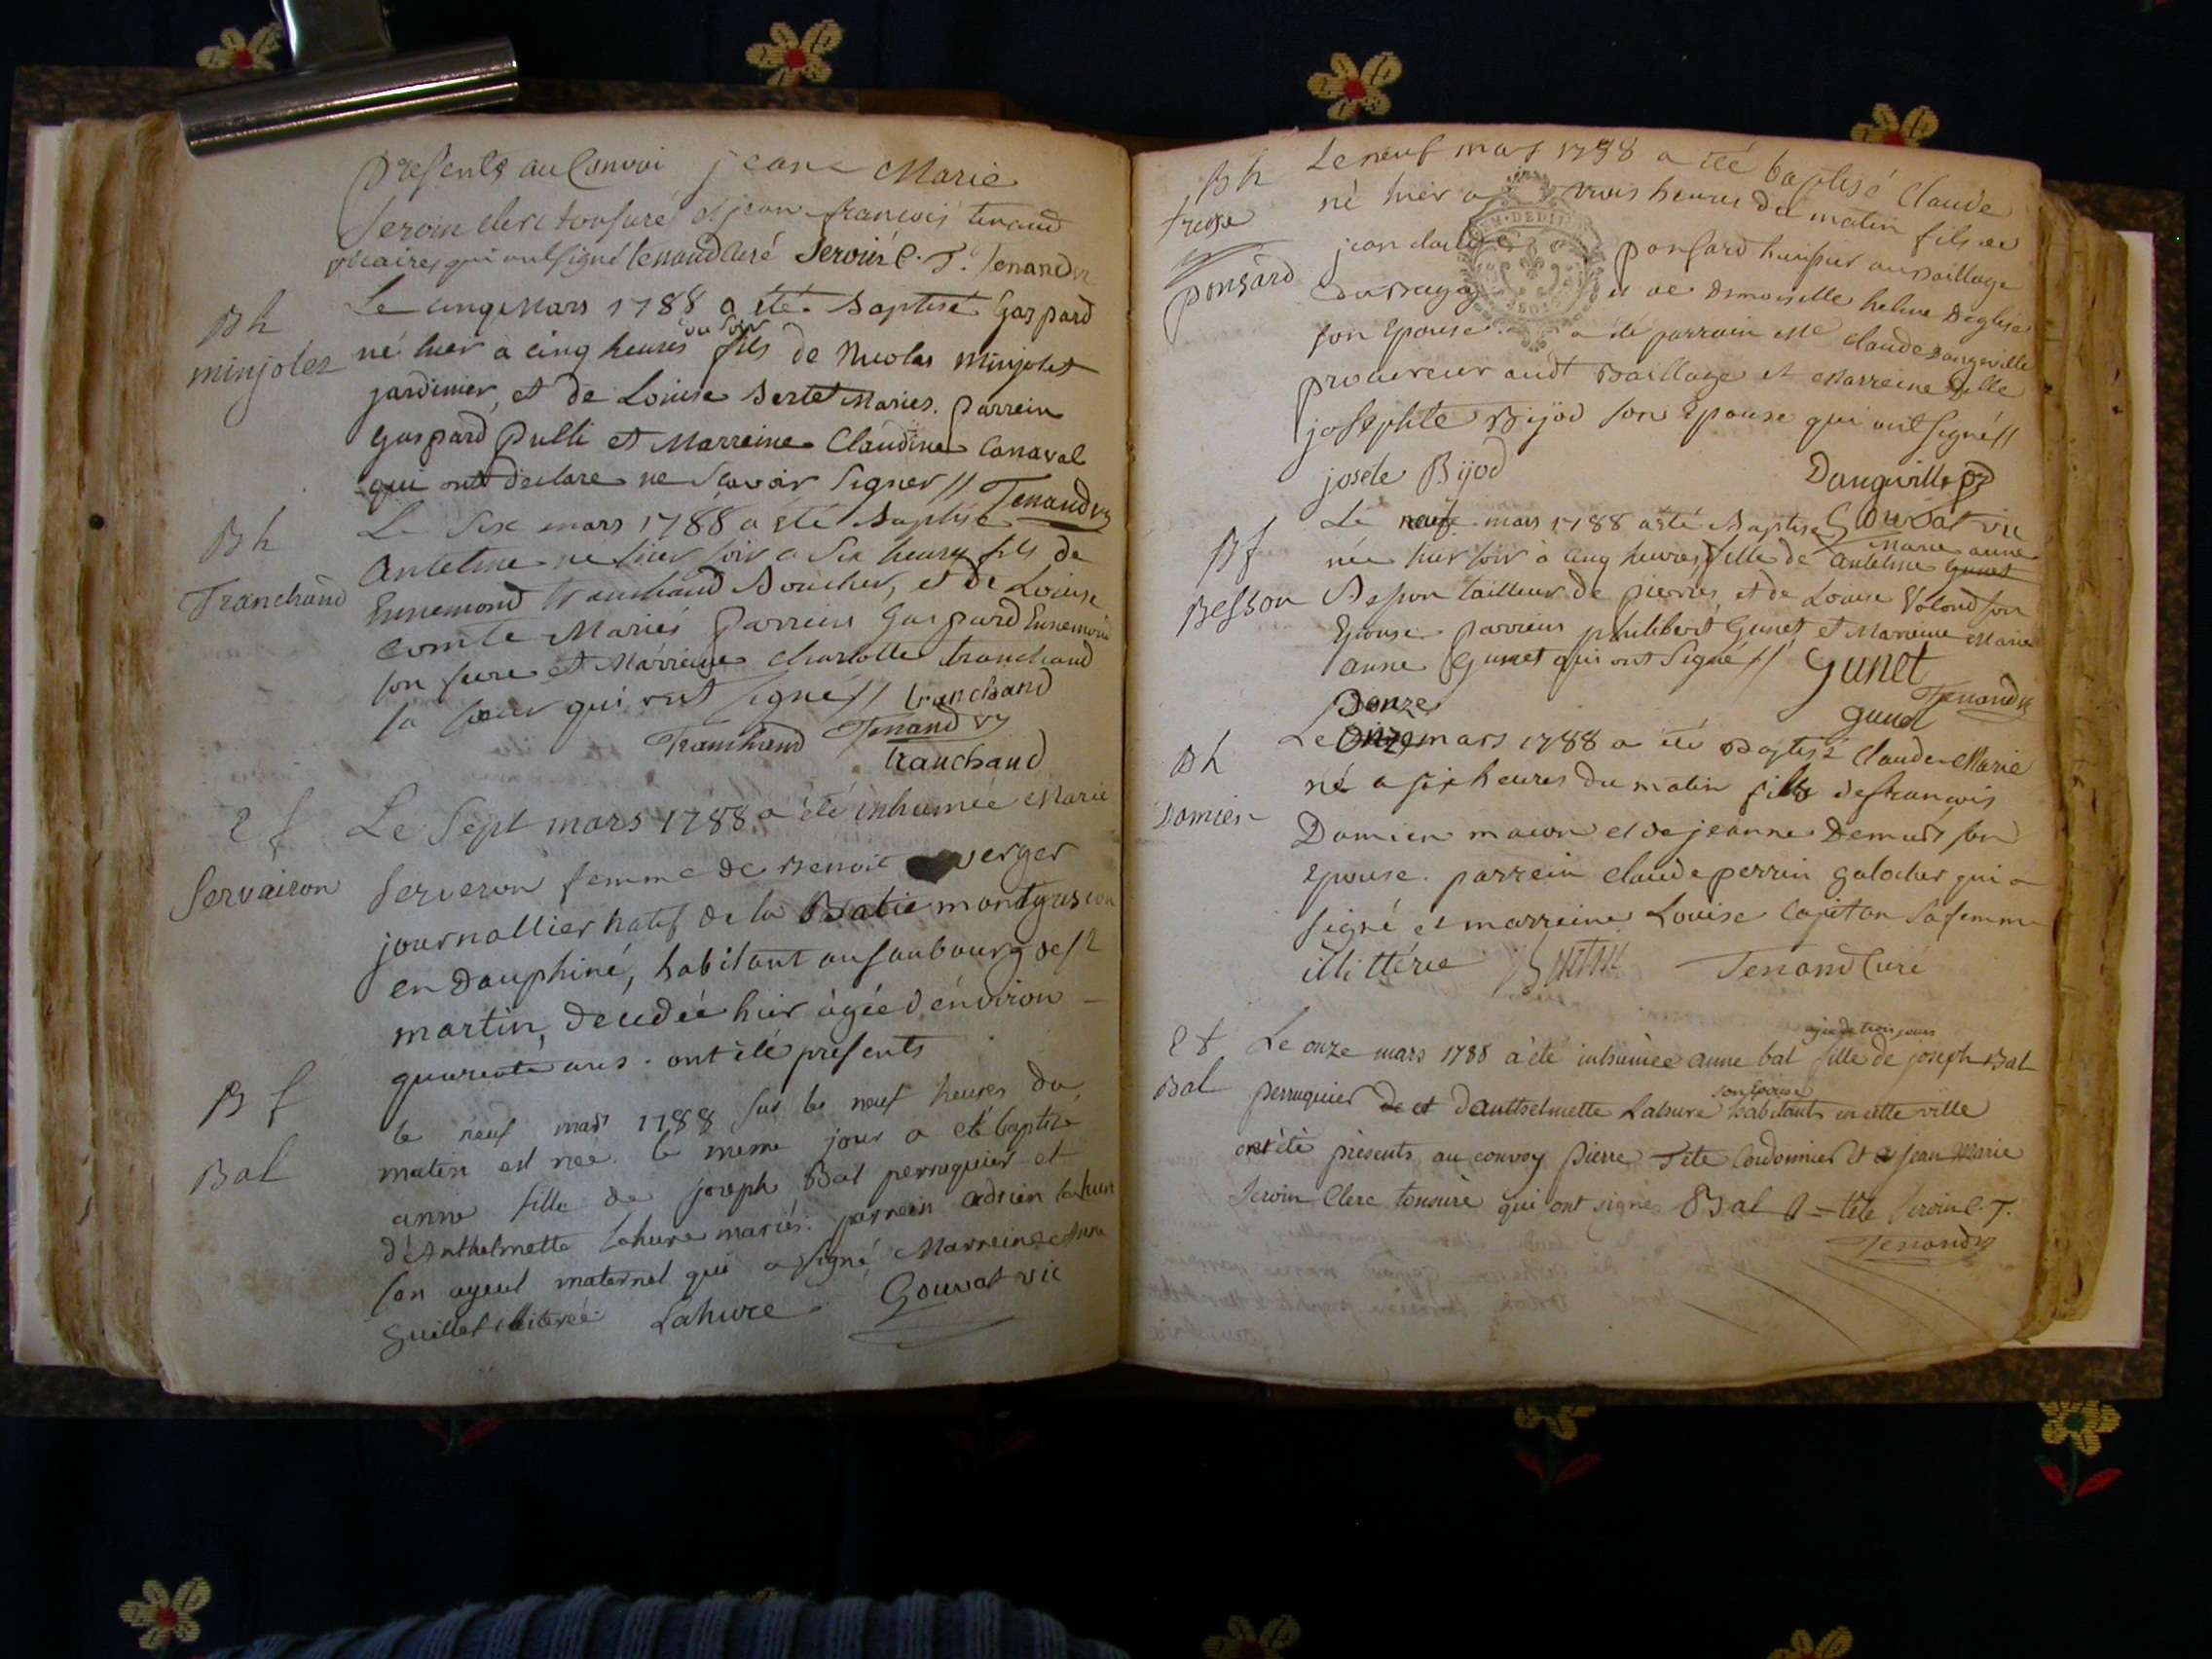 presents au Convoi jean Marie
Seroin clerc tonsuré et jean françois tenand
vicaires qui ont signé tenand curé Seroin C. T. Tenand vi
Bh
minjolet
Le cinq Mars 1788 a été baptisé Gaspard
né hier à cinq heures du soir fils de Nicolas Minjolet
jardinier, et de Louise Bertet Mariés. parrein
gaspard Pulli et Marreine Claudine Canaval
qui ont declare ne sçavoir signer // Tenand vi
Bh
Tranchand
Le six mars 1788 a été baptisé
Antelme né hier soir a six heures fils de
Ennemond tranchand Boucher, et de Louise
Comte Mariés parrein Gaspard Ennemond
son frere et Marreine charlotte tranchand
sa soeur qui ont signé // tranchand
Tranchand Tenand vi
tranchand
E f
Servairon
Le Sept mars 1788 a été inhumée Marie
Serveron femme de Benoit verger
journallier natif de la Batie montgascon
en Dauphiné, habitant au faubourg de St
martin, decedée hier agée d'environ
quarente ans. ont été presents
B f
Bal
le neuf mars 1788 sur les neuf heures du
matin est née le meme jour a été baptisé
anne fille de joseph Bal perruquier et
d'Anthelmette Lahure mariés. parrein adrien lahure
son ayeul maternel qui a signé Marreine Anne
guillet illiterée. Lahure Gouvat vic
Bh
Ponsard
Le neuf mars 1788 a été baptisé Claude
né hier a trois heures du matin fils de
jean claude ponsard huissier au Baillage
du Bugey et de Demoiselle helene Deglise
son Epouse. a été parrain Me claude Dangeville
procureur audt Baillage et Marreine Delle
josephte Bijod son Epouse qui ont signé //
josete Bijod Dangeville pr
Gouvat vic
Bf
Besson
Le neuf mars 1788 a été Baptisé Marie anne
née hier soir à cinq heures fille de Antelme Gunet
Besson tailleur de pierres, et de Louise Volond son
Epouse. parrein philibert Gunet, et Marreine Marie
anne Gunet qui ont signé // Gunet
Tenand vi
gunet
Bh
Damien
Douze
Le onze mars 1788 a été Baptisé Claude Marie
né a six heures du matin fils de françois
Damien maçon et de jeanne Demart son
Epouse. parrein claude perrin galocher qui a
signé et marreine Louise Capitan sa femme
illittérée Tenand Curé
Ef
Bal
agée de trois jours
Le onze mars 1788 a été inhumée anne bal fille de joseph Bal
son Epouse
perruquier de et d'anthelmette Lahure habitants en cette ville
ont été présents au convoy Pierre Tête Cordonnier et a jean Marie
Seroin Clerc tonsuré qui ont signé Bal P tête Seroin C. T.
Tenand vi